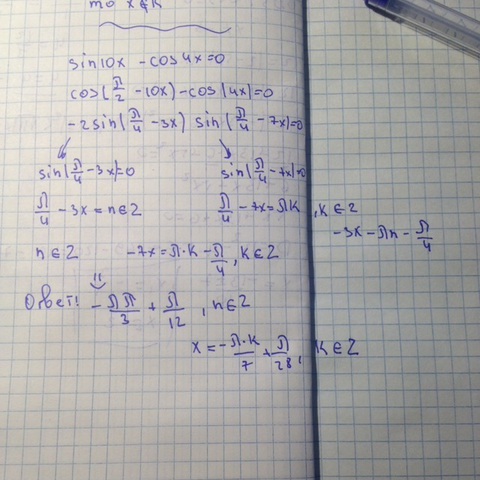 то x∉K
sin10x - cos4x=0
cos(π/2 - 10x) - cos(4x)=0
-2sin(π/4 - 3x) sin(π/4 - 7x)=0
sin(π/4 - 3x)=0 sin(π/4 - 7x)=0
π/4 - 3x = n∈Z π/4 - 7x = πK, K∈Z
-3x - πn - π/4
n∈Z -7x = π·K - π/4, K∈Z
Ответ: - πn/3 + π/12, n∈Z
x = -π·K/7 + π/28, K∈Z